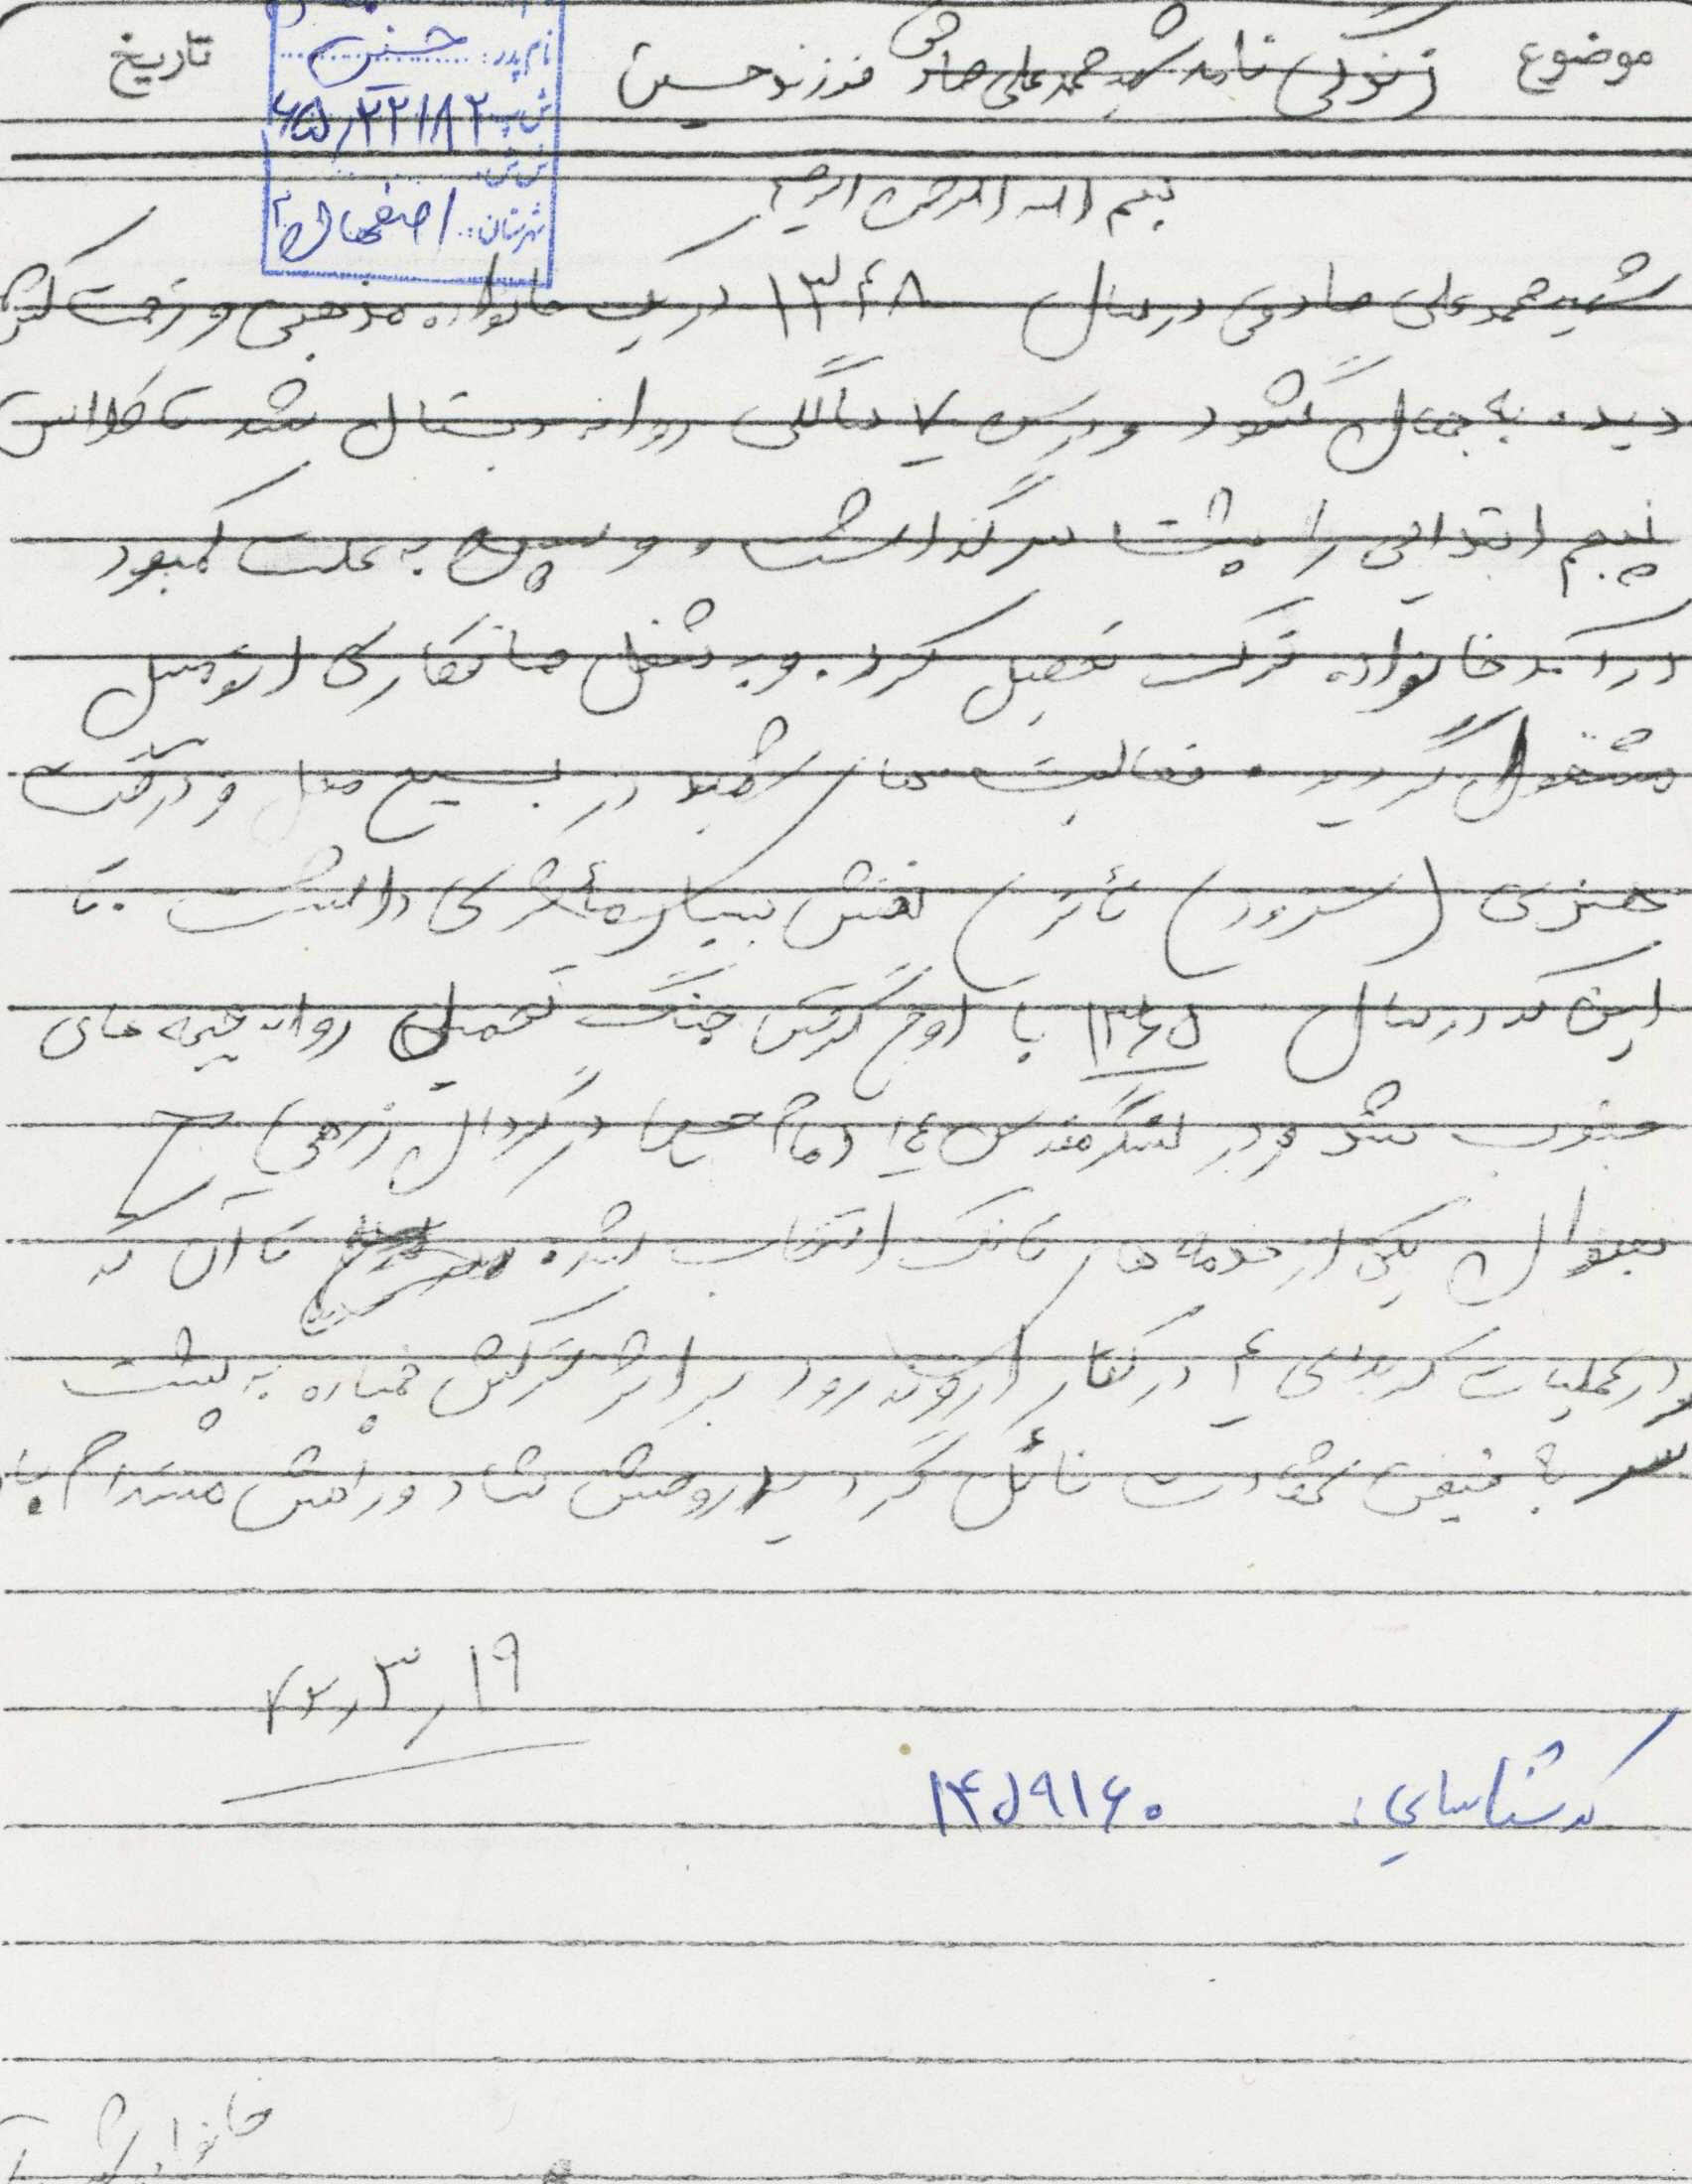 موضوع زندگی نامه شهید محمد علی صادقی فرزند حسین تاریخ
نام پدر: حسین
ش پ: ۶۵/۲۲۱۸۲
ش ش:
شهرستان: اصفهان
بسم الله الرحمن الرحیم
شهید محمد علی صادقی در سال ۱۳۴۸ در یک خانواده مذهبی و زحمت کش
دیده به جهان گشود و در سن ۷ سالگی روانه دبستان شد تا کلاس
پنجم ابتدایی را پشت سر گذاشت و سپس به علت کمبود
درآمد خانواده ترک تحصیل کرد. و به شغل صافکاری اتومبیل
مشغول گردید. فعالیت های شهید در بسیج محل و در قسمت
هنری (سرود) تأتر) نقش بسیار مأثری داشت. تا
این که در سال ۱۳۶۵ با اوج گرفتن جنگ تحمیلی روانه جبهه های
جنوب شد و در لشگر مقدس ۱۴ امام حسین در گردان زرهی
بعنوان یکی از خدمه های تانک انتخاب شد. تا آن که
در عملیات کربلای ۴ در کنار اروند رود بر اثر ترکش خمپاره به پشت
سر به فیض شهادت نائل گردید روحش شاد و راهش مستدام باد.
۷۲/۳/۱۹
کد شناسایی: ۱۴۵۹۱۶۰
خانواده شهید